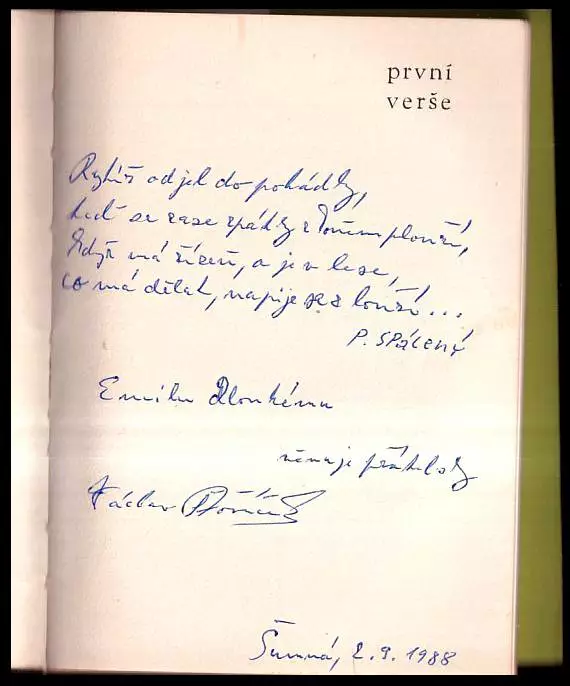 první
verše
Rytíř odjel do pohádky,
teď se zase zpátky s koněm plouží,
Když má žízeň, a je v lese,
co má dělat, napije se z louží...
P. SPÁLENÝ
Emilu Dlouhému
věnuje přátelsky
Václav
Šumná, 2.9.1988